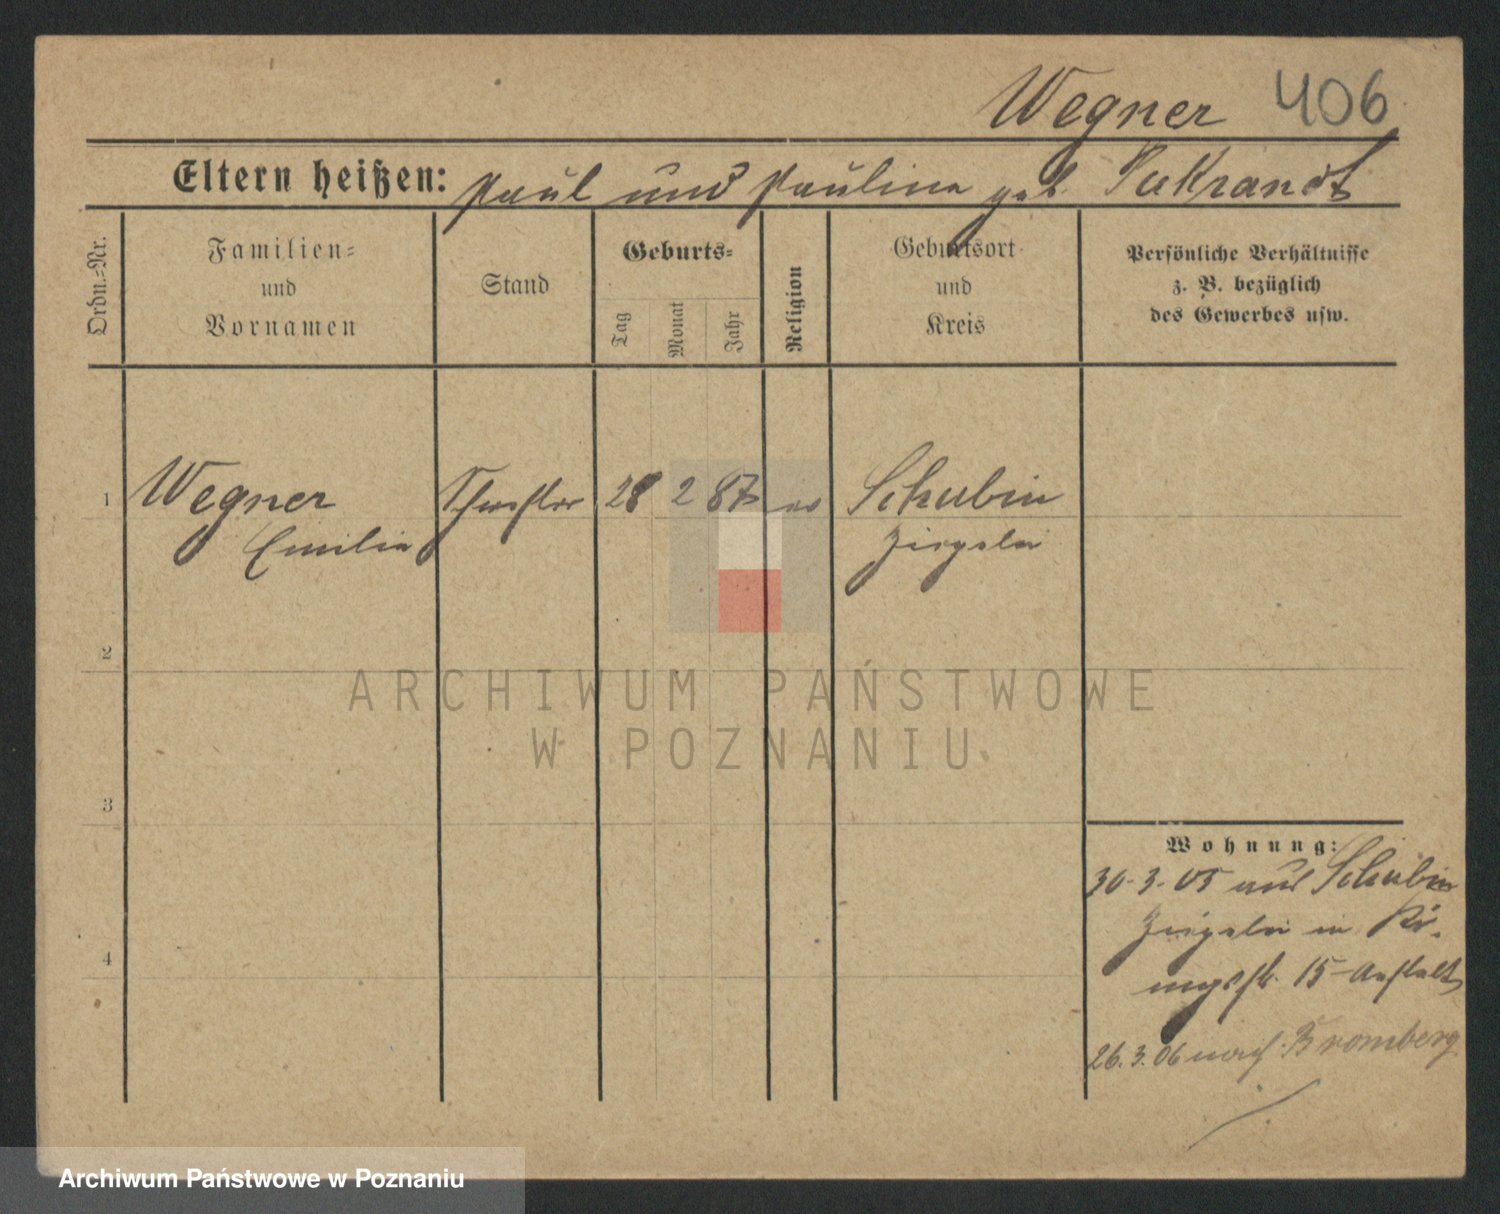 Wegner 406
Eltern heißen: Paul und Pauline geb. Pukrandt
Ordn.=Nr.
Familien=
und
Vornamen
Stand
Geburts=
Tag
Monat
Jahr
Religion
Geburtsort
und
Kreis
Persönliche Verhältnisse
z. B. bezüglich
des Gewerbes usw.
1 Wegner 28 2 87 Schubin
Emilie Ziegelei
2
3
4
Wohnung:
30.3.05 aus Schubin
Ziegelei in Kö-
nigsstr. 15 Anstalt
26.3.06 nach Bromberg
ARCHIWUM PAŃSTWOWE
W POZNANIU
Archiwum Państwowe w Poznaniu